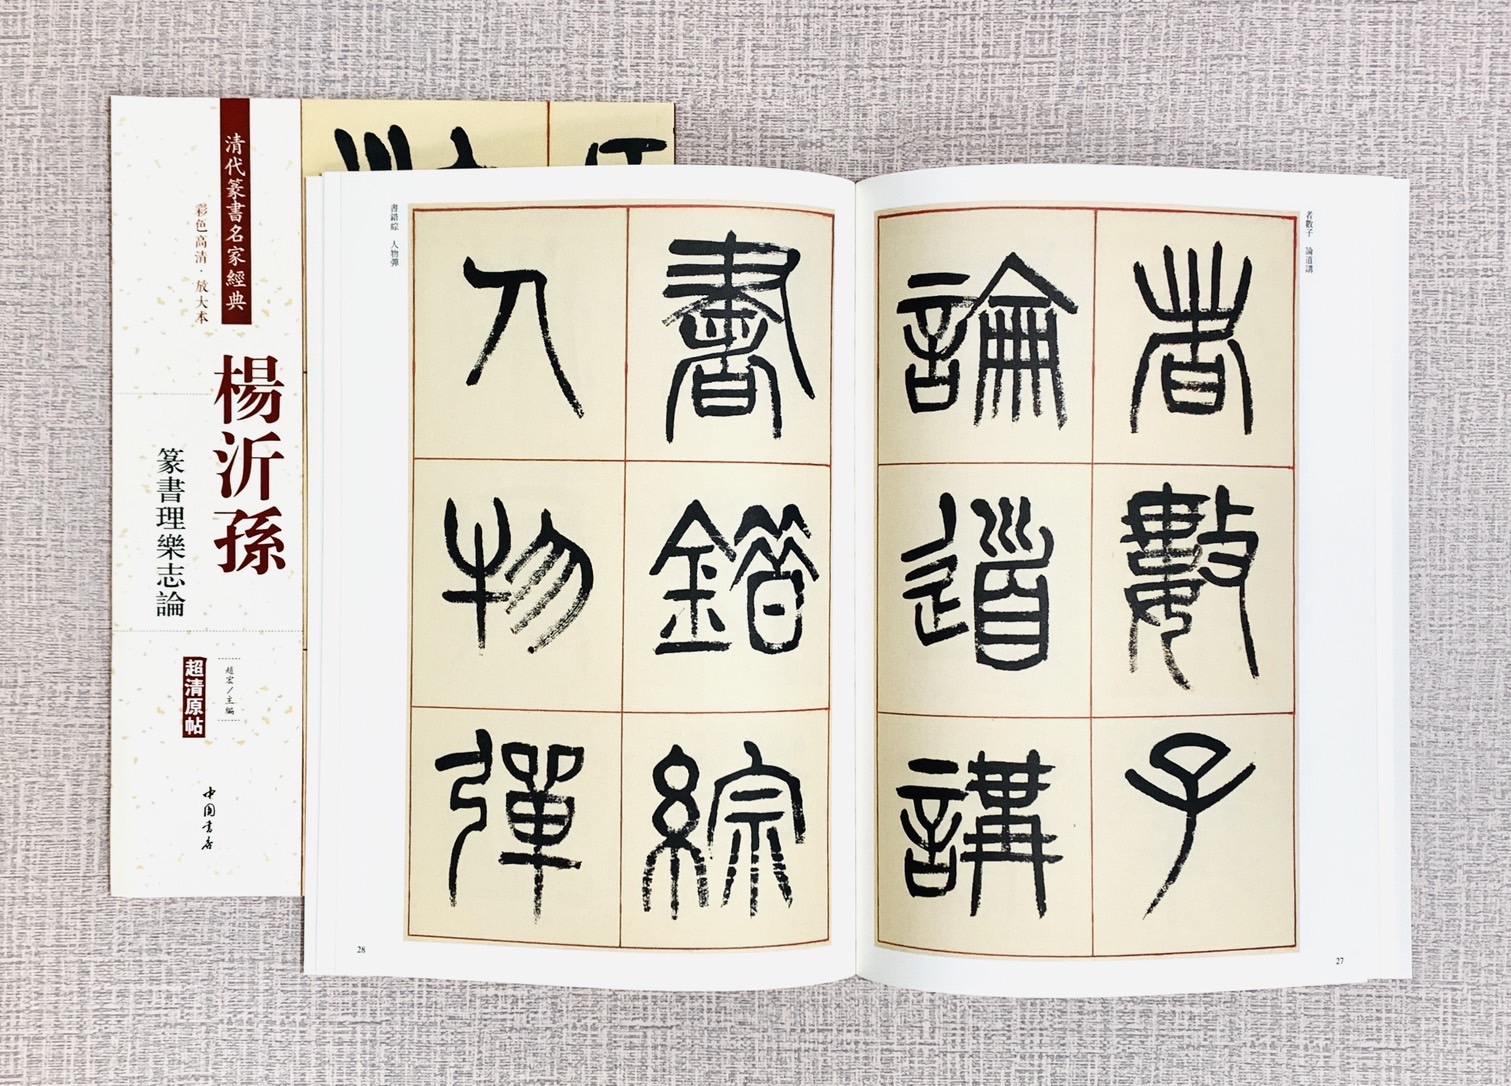 清代篆書名家經典
彩色高清·放大本
楊沂孫
篆書理樂志論
趙宏／主編
超清原帖
中国书店
者數子 論道講
者數子
論道講
27
書錯綜 人物彈
書錯綜
人物彈
28